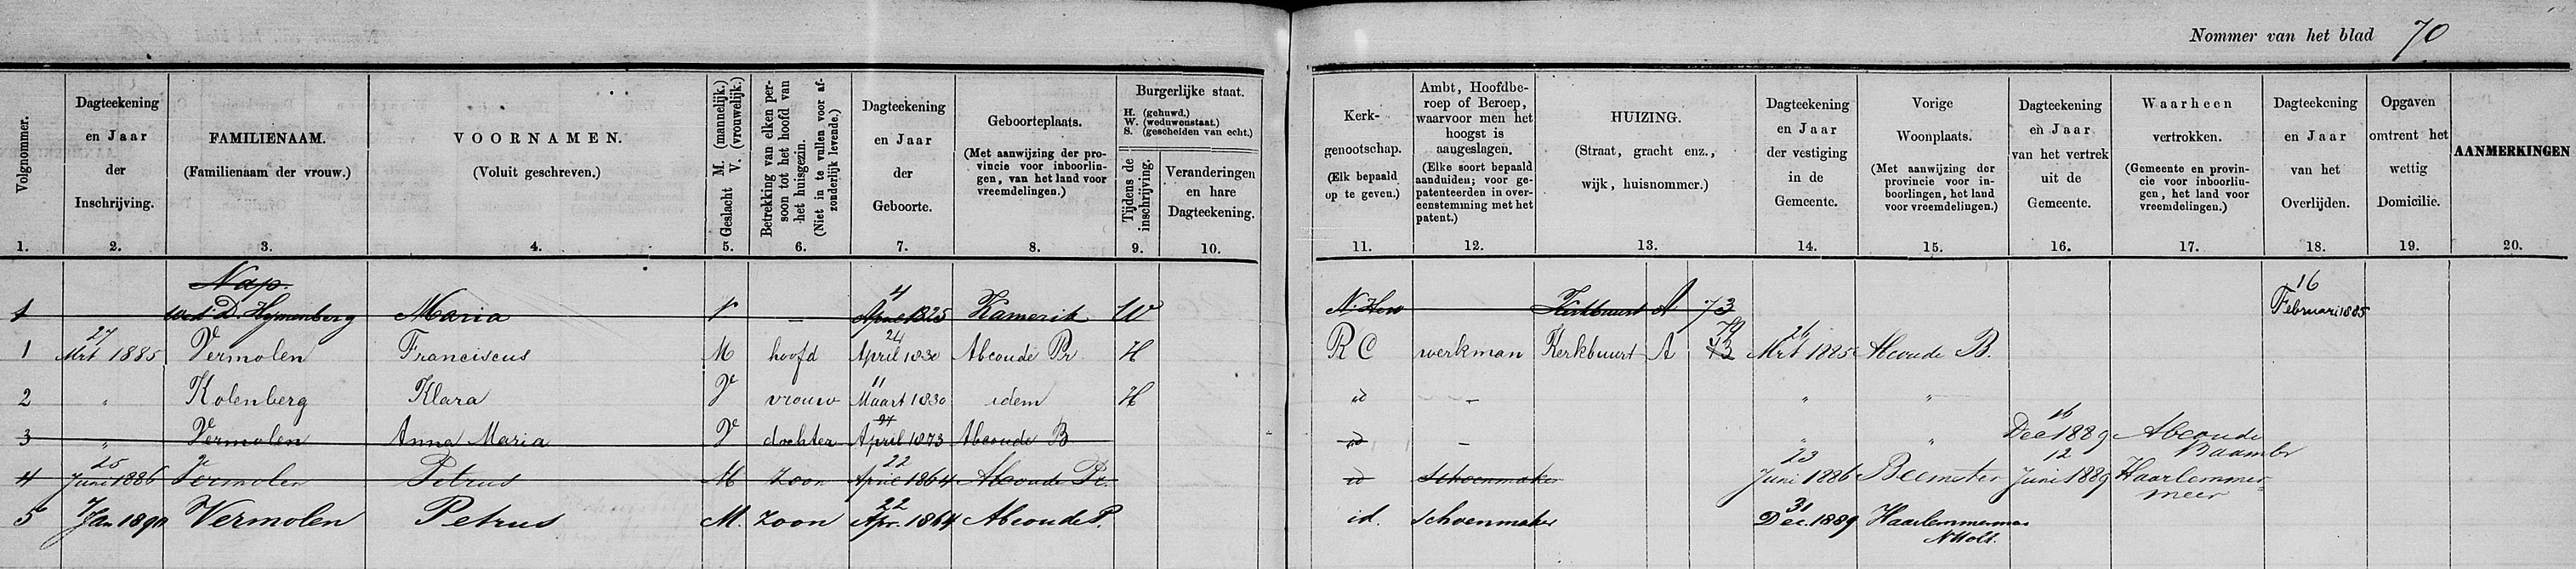 Nommer van het blad 70
Volgnommer. 1.
Dagteekening en Jaar der Inschrijving. 2.
FAMILIENAAM. (Familienaam der vrouw.) 3.
VOORNAMEN. (Voluit geschreven.) 4.
Geslacht M. (mannelijk.) V. (vrouwelijk.) 5.
Betrekking van elken persoon tot het hoofd van het huisgezin. (Niet in te vullen voor afzonderlijk levende.) 6.
Dagteekening en Jaar der Geboorte. 7.
Geboorteplaats. (Met aanwijzing der provincie voor inboorlingen, van het land voor vreemdelingen.) 8.
Burgerlijke staat. H. (gehuwd.) W. (weduwenstaat.) S. (gescheiden van echt.)
Tijdens de inschrijving. 9.
Veranderingen en hare Dagteekening. 10.
Kerkgenootschap. (Elk bepaald op te geven.) 11.
Ambt, Hoofdberoep of Beroep, waarvoor men het hoogst is aangeslagen. (Elke soort bepaald aanduiden; voor gepatenteerden in overeenstemming met het patent.) 12.
HUIZING. (Straat, gracht enz., wijk, huisnommer.) 13.
Dagteekening en Jaar der vestiging in de Gemeente. 14.
Vorige Woonplaats. (Met aanwijzing der provincie voor inboorlingen, het land voor vreemdelingen.) 15.
Dagteekening en Jaar van het vertrek uit de Gemeente. 16.
Waarheen vertrokken. (Gemeente en provincie voor inboorlingen, het land voor vreemdelingen.) 17.
Dagteekening en Jaar van het Overlijden. 18.
Opgaven omtrent het wettig Domicilie. 19.
AANMERKINGEN 20.
Nap.
1 wed. D. Maria V — 4 April 1825 Kamerik W N. Herv Kerkbuurt A 73 16 Februari 1885
1 27 Mrt 1885 Vermolen Franciscus M hoofd 24 April 1830 Abcoude Pr. H R C werkman Kerkbuurt A 73 70 26 Mrt 1885 Abcoude B.
2 " Kolenberg Klara V vrouw 11 Maart 1830 idem H id — " "
3 " Vermolen Anna Maria V dochter April 1873 Abcoude B id — " " 16 Dec 1889 Abcoude Baambr
4 25 Juni 1886 Vermolen Petrus M Zoon 22 April 1864 Abcoude Pr. id Schoenmaker 23 Juni 1886 Beemster 12 Juni 1889 Haarlemmermeer
5 7 Jan 1890 Vermolen Petrus M. Zoon 22 Apr. 1864 Abcoude P. id. Schoenmaker 31 Dec. 1889 Haarlemmermeer NHoll.